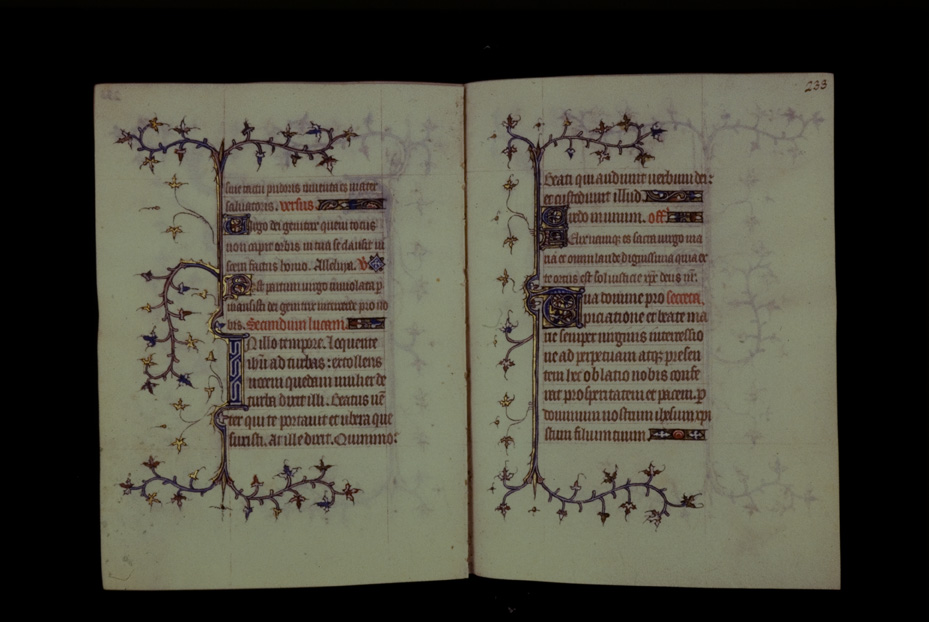 sine tactu pudoris inventa es mater
salvatoris. versus
Virgo dei genitrix quem totus
non capit orbis in tua se clausit vi
scera factus homo. Alleluya. V
Post partum virgo inviolata p
mansisti dei genitrix intercede pro no
bis. Secundum lucam
In illo tempore. Loquente
ihesu ad turbas: extollens
vocem quedam mulier de
turba dixit illi. Beatus ven
ter qui te portavit et ubera que
suxisti. At ille dixit. Quinimo:
233
Beati qui audiunt verbum dei:
et custodiunt illud
Credo in unum. off
Felix namque es sacra virgo ma
ria et omni laude dignissima quia ex
te ortus est sol iusticie xpc deus nr.
Tua domine pro secreta.
piciatione et beate ma
rie semper virginis intercessio
ne ad perpetuam atque presen
tem hec oblatio nobis confe
rat prosperitatem et pacem. p
dominum nostrum ihesum xpi
stum filium tuum